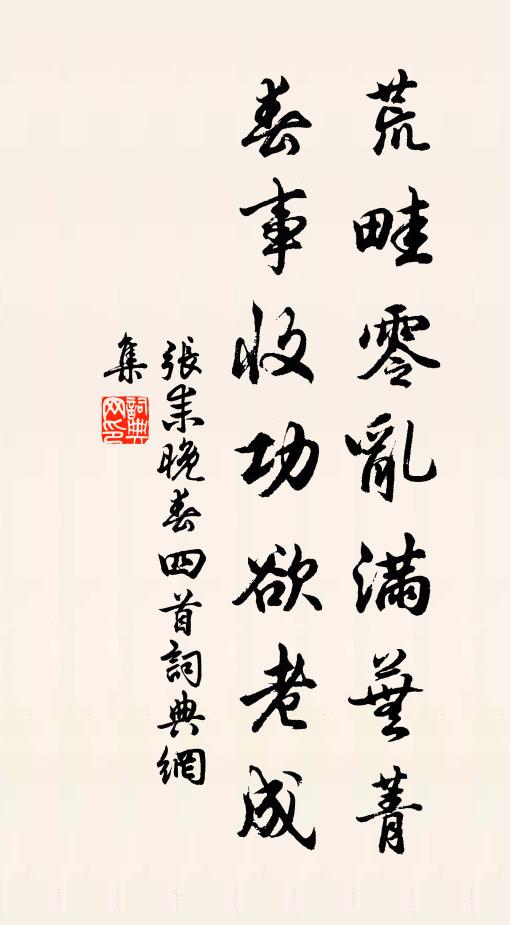 荒畦零亂滿蕪菁
春事收功欲老成
張耒晚春四首詞典網
集
詞典
网印